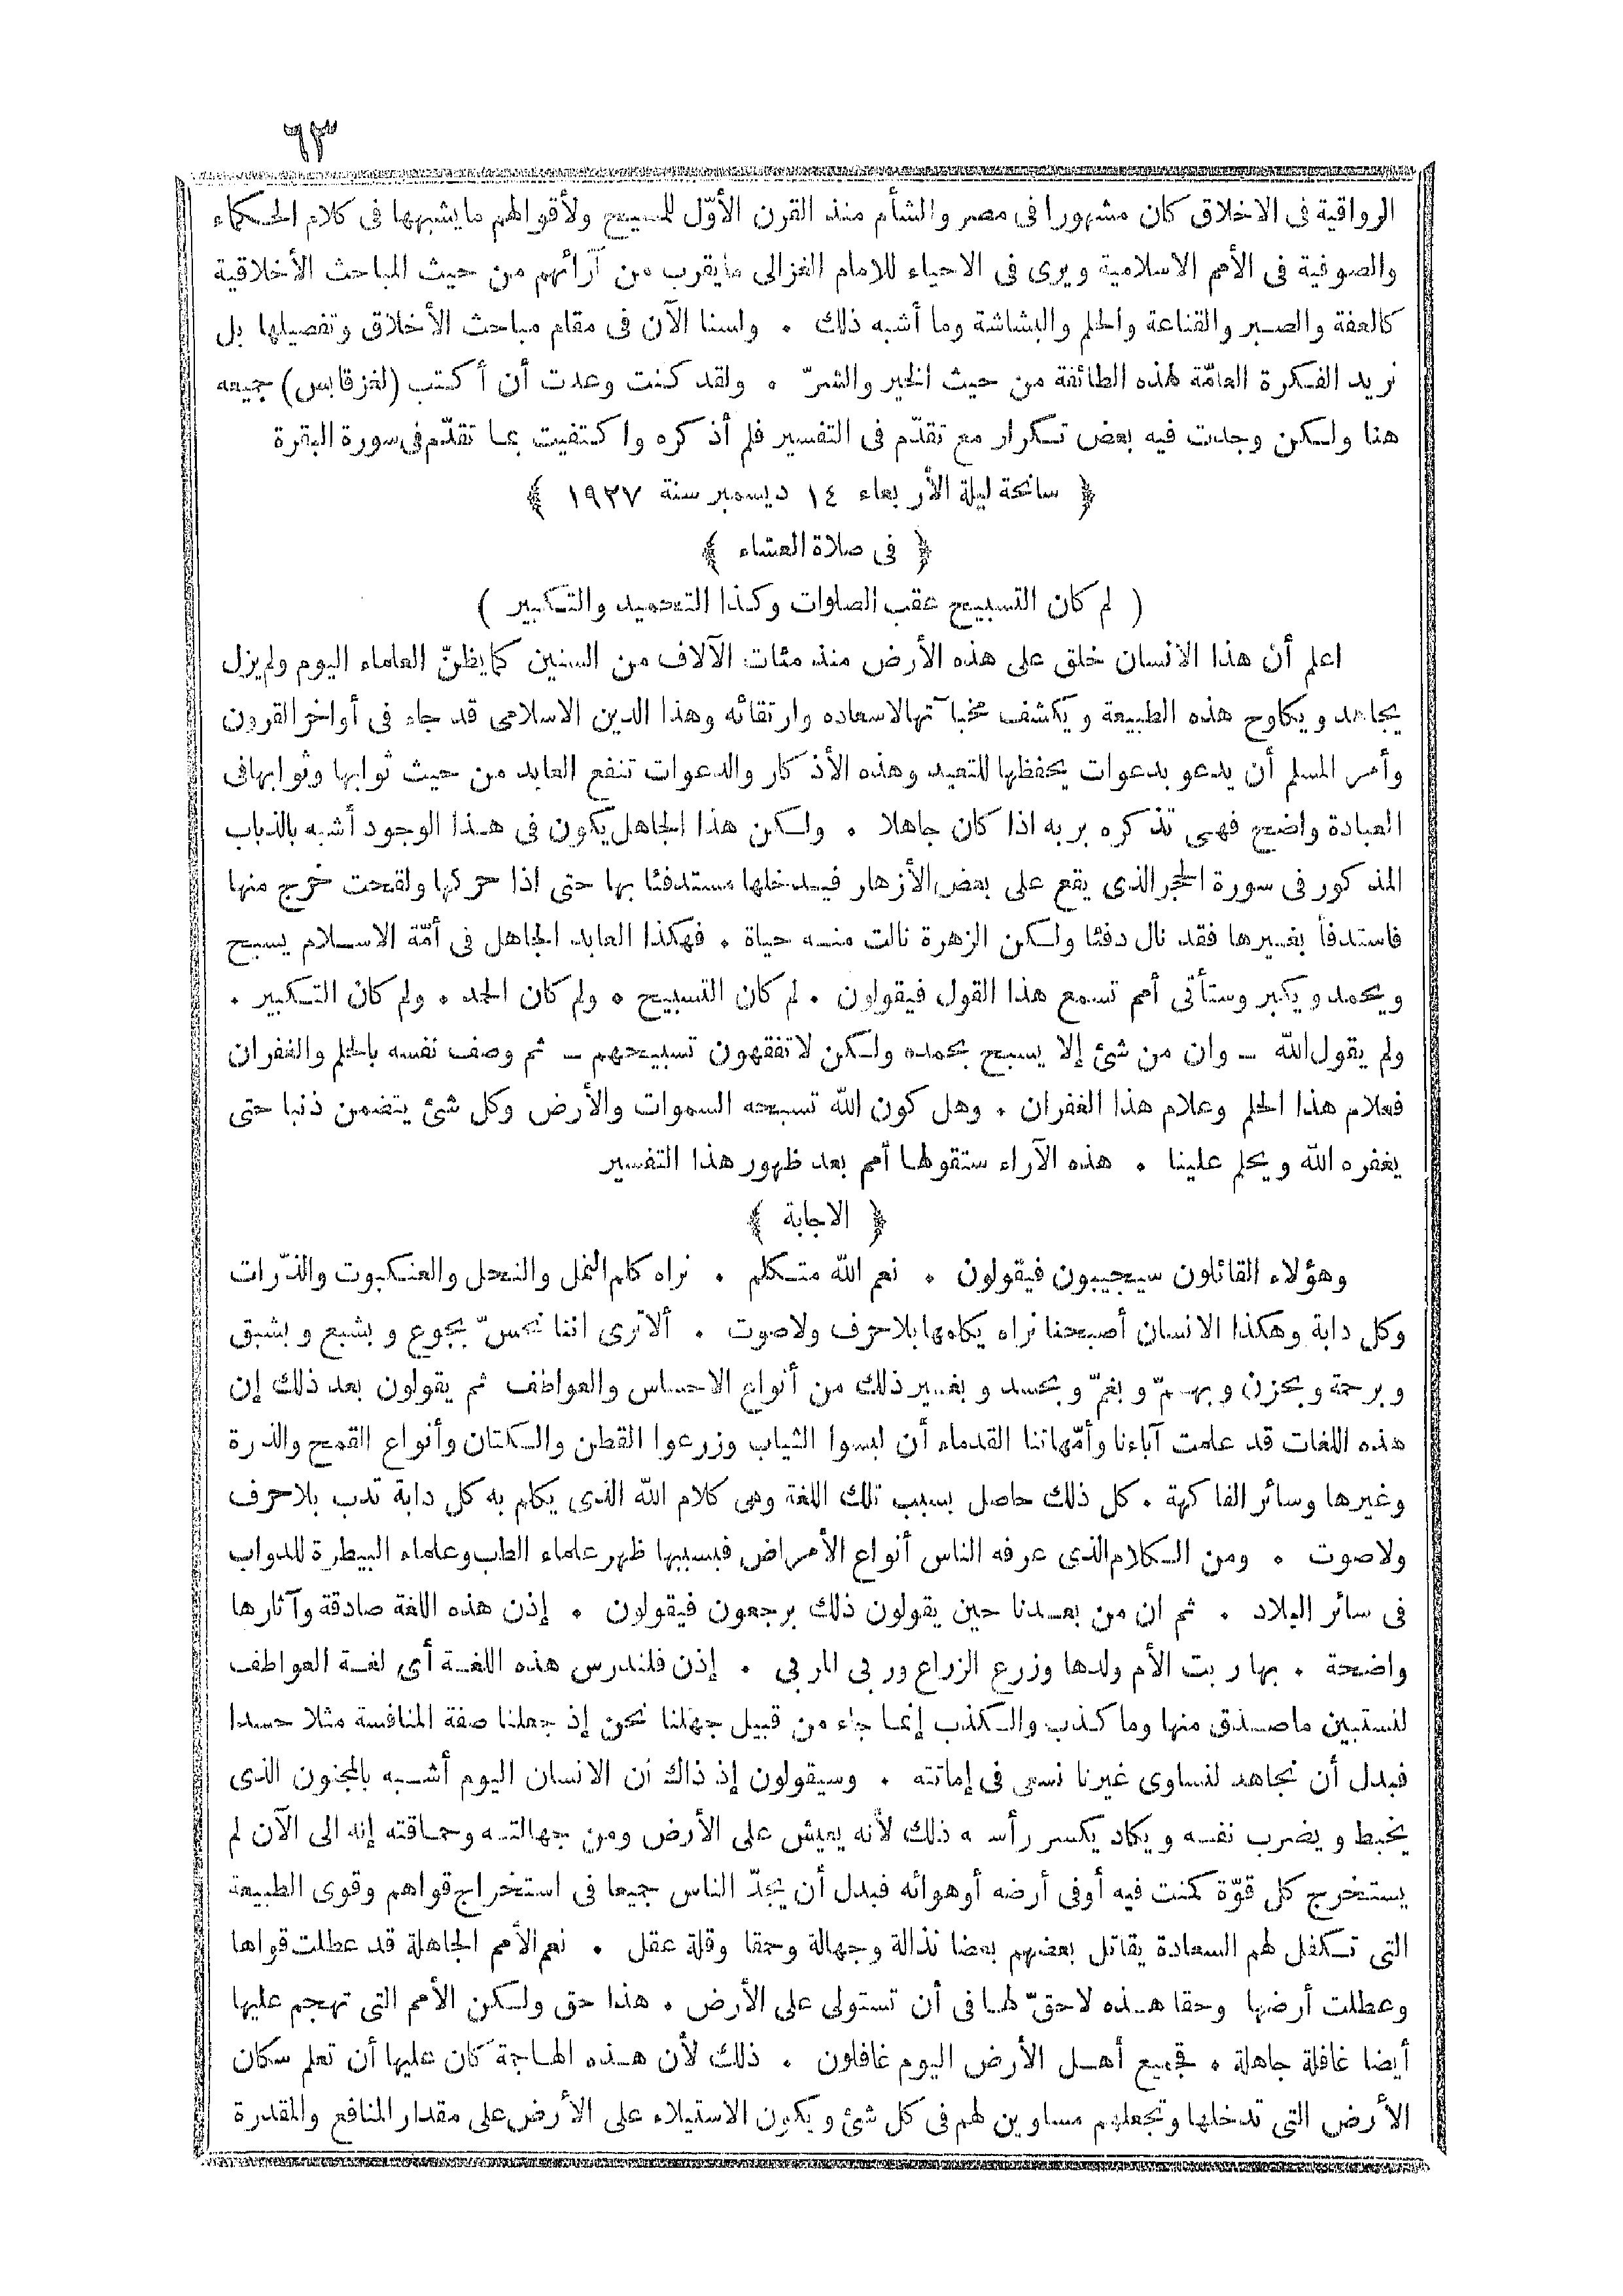 ٦٣
الرواقية فى الاخلاق كان مشهورا فى مصر والشأم منذ القرن الأوّل للمسيح ولأقوالهم مايشبهها فى كلام الحكماء
والصوفية فى الأمم الاسلامية ويرى فى الاحياء للامام الغزالى مايقرب من آرائهم من حيث المباحث الأخلاقية
كالعفة والصبر والقناعة والحلم والبشاشة وما أشبه ذلك . ولسنا الآن فى مقام مباحث الأخلاق وتفصيلها بل
نريد الفكرة العامّة لهذه الطائفة من حيث الخير والشرّ . ولقد كنت وعدت أن أكتب (لغز قابس) جميعه
هنا ولكن وجدت فيه بعض تكرار مع تقدّم فى التفسير فلم أذكره واكتفيت بما تقدّم فى سورة البقرة
﴿ سانحة ليلة الأربعاء ١٤ ديسمبر سنة ١٩٢٧ ﴾
﴿ فى صلاة العشاء ﴾
( لم كان التسبيح عقب الصلوات وكذا التحميد والتكبير )
اعلم أن هذا الانسان خلق على هذه الأرض منذ مئات الآلاف من السنين كما يظنّ العلماء اليوم ولم يزل
يجاهد ويكاوح هذه الطبيعة ويكشف مخبآتها لاسعاده وارتقائه وهذا الدين الاسلامى قد جاء فى أواخر القرون
وأمر المسلم أن يدعو بدعوات يحفظها للتعبد وهذه الأذكار والدعوات تنفع العابد من حيث ثوابها وثوابها فى
العبادة واضح فهى تذكره بربه اذا كان جاهلا . ولكن هذا الجاهل يكون فى هذا الوجود أشبه بالذباب
المذكور فى سورة الحجر الذى يقع على بعض الأزهار فيدخلها مستدفئا بها حتى اذا حركها ولقحت خرج منها
فاستدفأ بغيرها فقد نال دفئا ولكن الزهرة نالت منه حياة . فهكذا العابد الجاهل فى أمّة الاسلام يسبح
ويحمد ويكبر وستأتى أمم تسمع هذا القول فيقولون . لم كان التسبيح . ولم كان الحمد . ولم كان التكبير .
ولم يقول الله - وان من شئ إلا يسبح بحمده ولكن لا تفقهون تسبيحهم - ثم وصف نفسه بالحلم والغفران
فعلام هذا الحلم وعلام هذا الغفران . وهل كون الله تسبحه السموات والأرض وكل شئ يتضمن ذنبا حتى
يغفره الله ويحلم علينا . هذه الآراء ستقولها أمم بعد ظهور هذا التفسير
﴿ الاجابة ﴾
وهؤلاء القائلون سيجيبون فيقولون . نعم الله متكلم . نراه كلم النمل والنحل والعنكبوت والذرّات
وكل دابة وهكذا الانسان أصبحنا نراه يكلمها بلاحرف ولاصوت . ألا ترى اننا نحسّ بجوع وبشبع وبشبق
وبرحمة وبحزن وبهمّ وبغمّ وبحسد وبغير ذلك من أنواع الاحساس والعواطف ثم يقولون بعد ذلك إن
هذه اللغات قد علمت آباءنا وأمّهاتنا القدماء أن لبسوا الثياب وزرعوا القطن والكتان وأنواع القمح والذرة
وغيرها وسائر الفاكهة . كل ذلك حاصل بسبب تلك اللغة وهى كلام الله الذى يكلم به كل دابة تدب بلاحرف
ولاصوت . ومن الكلام الذى عرفه الناس أنواع الأمراض فبسببها ظهر علماء الطب وعلماء البيطرة للدواب
فى سائر البلاد . ثم ان من بعدنا حين يقولون ذلك يرجعون فيقولون . إذن هذه اللغة صادقة وآثارها
واضحة . بها ربت الأم ولدها وزرع الزراع وربى المربى . إذن فلندرس هذه اللغة أى لغة العواطف
لنستبين ماصدق منها وما كذب والكذب إنما جاء من قبيل جهلنا نحن إذ جعلنا صفة المنافسة مثلا حسدا
فبدل أن نجاهد لنساوى غيرنا نسعى فى إماتته . وسيقولون إذ ذاك ان الانسان اليوم أشبه بالمجنون الذى
يخبط ويضرب نفسه ويكاد يكسر رأسه ذلك لأنه يعيش على الأرض ومن جهالته وحماقته إنه الى الآن لم
يستخرج كل قوّة كمنت فيه أوفى أرضه أوهوائه فبدل أن يجدّ الناس جميعا فى استخراج قواهم وقوى الطبيعة
التى تكفل لهم السعادة يقاتل بعضهم بعضا نذالة وجهالة وحمقا وقلة عقل . نعم الأمم الجاهلة قد عطلت قواها
وعطلت أرضها وحقا هذه لاحقّ لها فى أن تستولى على الأرض . هذا حق ولكن الأمم التى تهجم عليها
أيضا غافلة جاهلة . فجميع أهل الأرض اليوم غافلون . ذلك لأن هذه الهاجة كان عليها أن تعلم سكان
الأرض التى تدخلها وتجعلهم مساوين لهم فى كل شئ ويكون الاستيلاء على الأرض على مقدار المنافع والمقدرة